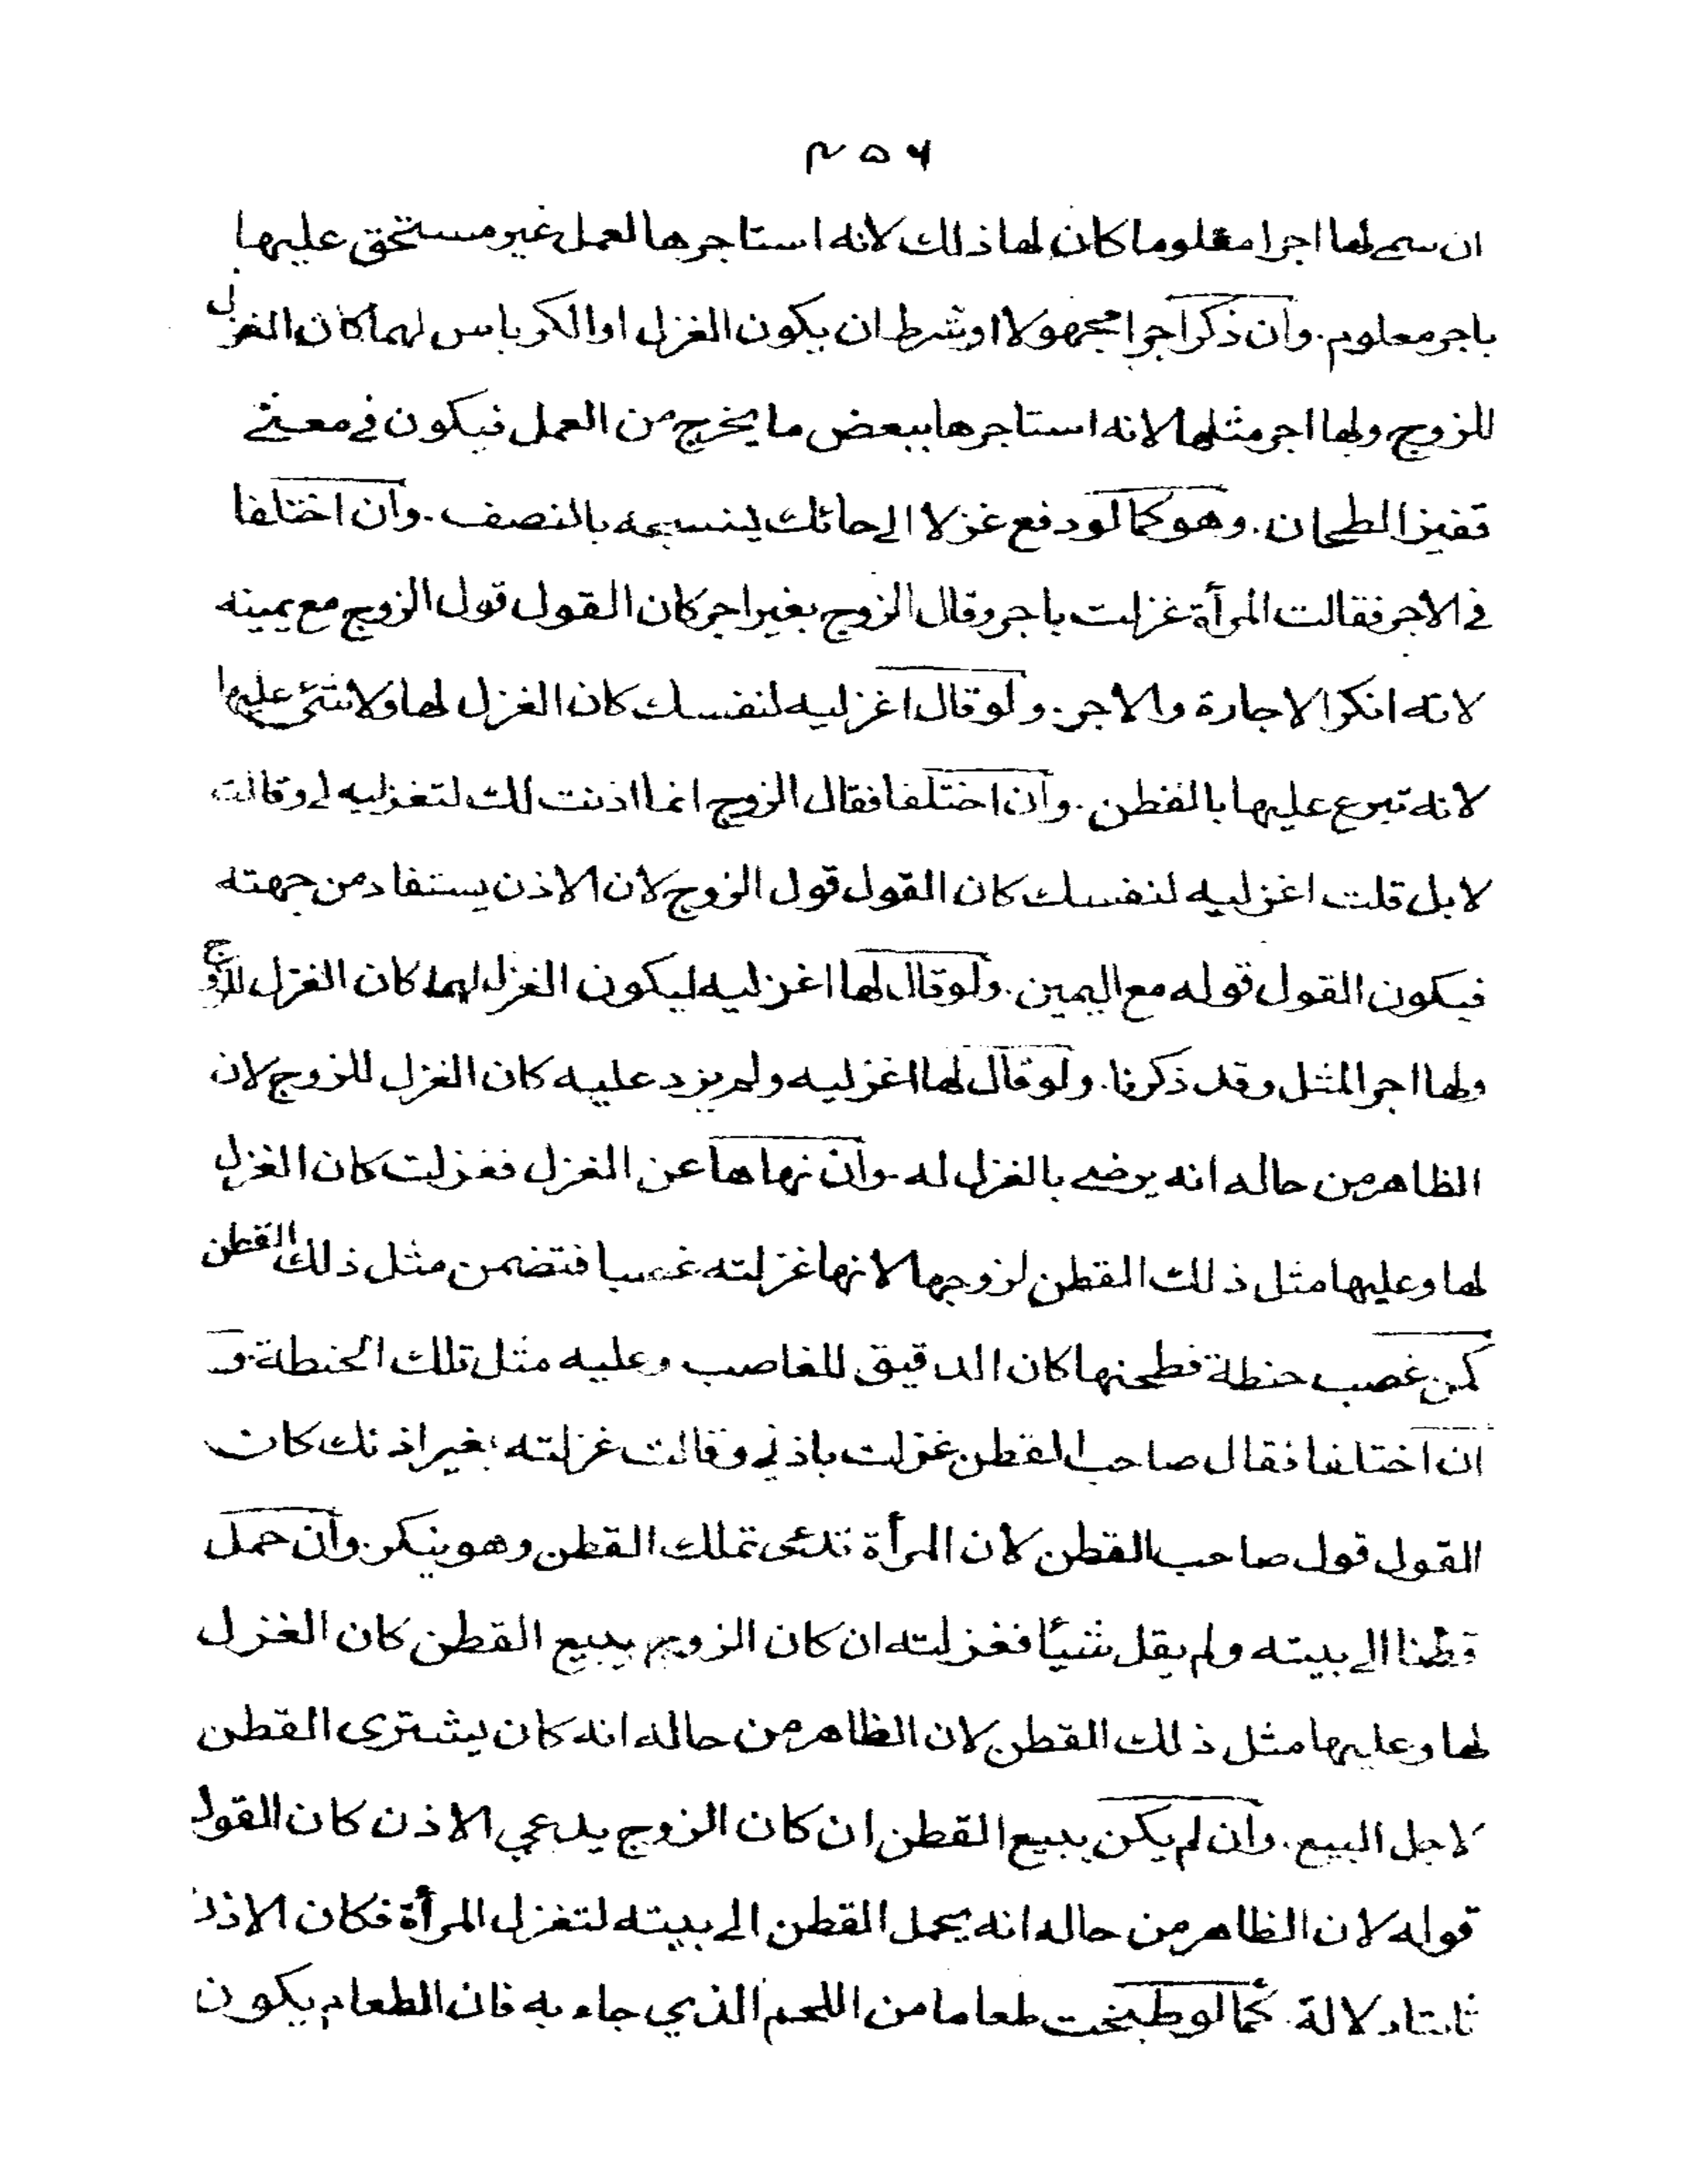 ۴۵۶
ان سمى لها اجرا معلوما كان لها ذلك لانه استاجرها لعمل غير مستحق عليها
باجر معلوم. وان ذكر اجرا مجهولا او شرط ان يكون الغزل او الكرباس لهما كان الغزل
للزوج ولها اجر مثلها لانه استاجرها ببعض ما يخرج من العمل فيكون في معنى
قفيز الطحان. وهو كما لو دفع غزلا الى حائك لينسجه بالنصف. وان اختلفا
في الاجر فقالت المرأة غزلت باجر وقال الزوج بغير اجر كان القول قول الزوج مع يمينه
لانه انكر الاجارة والاجر. ولو قال اغزليه لنفسك كان الغزل لها ولا شئ عليها
لانه تبرع عليها بالقطن. وان اختلفا فقال الزوج انما اذنت لك لتغزليه لى وقالت
لا بل قلت اغزليه لنفسك كان القول قول الزوج لان الاذن يستفاد من جهته
فيكون القول قوله مع اليمين. ولو قال لها اغزليه ليكون الغزل لهما كان الغزل للزوج
ولها اجر المثل وقد ذكرنا. ولو قال لها اغزليه ولم يزد عليه كان الغزل للزوج لان
الظاهر من حاله انه يرضى بالغزل له. وان نهاها عن الغزل فغزلت كان الغزل
لها وعليها مثل ذلك القطن لزوجها لانها غزلته غصبا فتضمن مثل ذلك القطن
كمن غصب حنطة فطحنها كان الدقيق للغاصب وعليه مثل تلك الحنطة. و
ان اختلفا فقال صاحب القطن غزلت باذني وقالت غزلته بغير اذنك كان
القول قول صاحب القطن لان المرأة تدعى تملك القطن وهو ينكر. وان حمل
قطنا الى بيته ولم يقل شيئا فغزلته ان كان الزوج يبيع القطن كان الغزل
لها وعليها مثل ذلك القطن لان الظاهر من حاله انه كان يشترى القطن
لاجل البيع. وان لم يكن يبيع القطن ان كان الزوج يدعي الاذن كان القول
قوله لان الظاهر من حاله انه يحمل القطن الى بيته لتغزل المرأة فكان الاذن
ثابتا دلالة. كما لو طبخت طعاما من اللحم الذي جاء به فان الطعام يكون